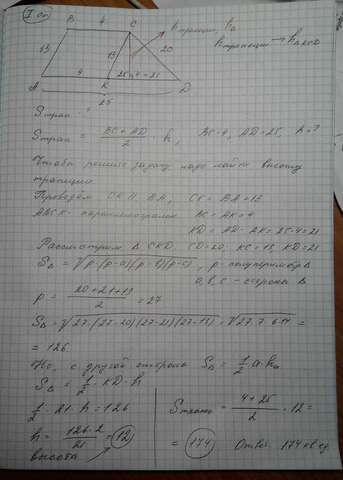 I сп
B 4 C
h трапеции h Δ
13 13 20
h трапеции → h Δ КCD
4 25-4=21
A K D
25
S трап = 
S трап = (BC + AD)/2 · h, BC=4, AD=25, h=?
Чтобы решить задачу надо найти высоту
трапеции
Проведём CK || BA, CK = BA = 13
ABCK - параллелограмм BC = AK = 4
KD = AD - AK = 25-4=21
Рассмотрим Δ CKD, CD=20, KC=13, KD=21
SΔ = √p(p-a)(p-b)(p-c), p - полупериметр Δ
a, b, c - стороны Δ
p = (20+21+13)/2 = 27
SΔ = √27·(27-20)(27-21)(27-13) = √27·7·6·14 =
= 126
Но, с другой стороны SΔ = 1/2 a·ha
SΔ = 1/2 · KD · h
1/2 · 21 · h = 126
h = 126·2/21 = 12
высота
S трап = (4+25)/2 · 12 =
= 174 Ответ: 174 кв ед